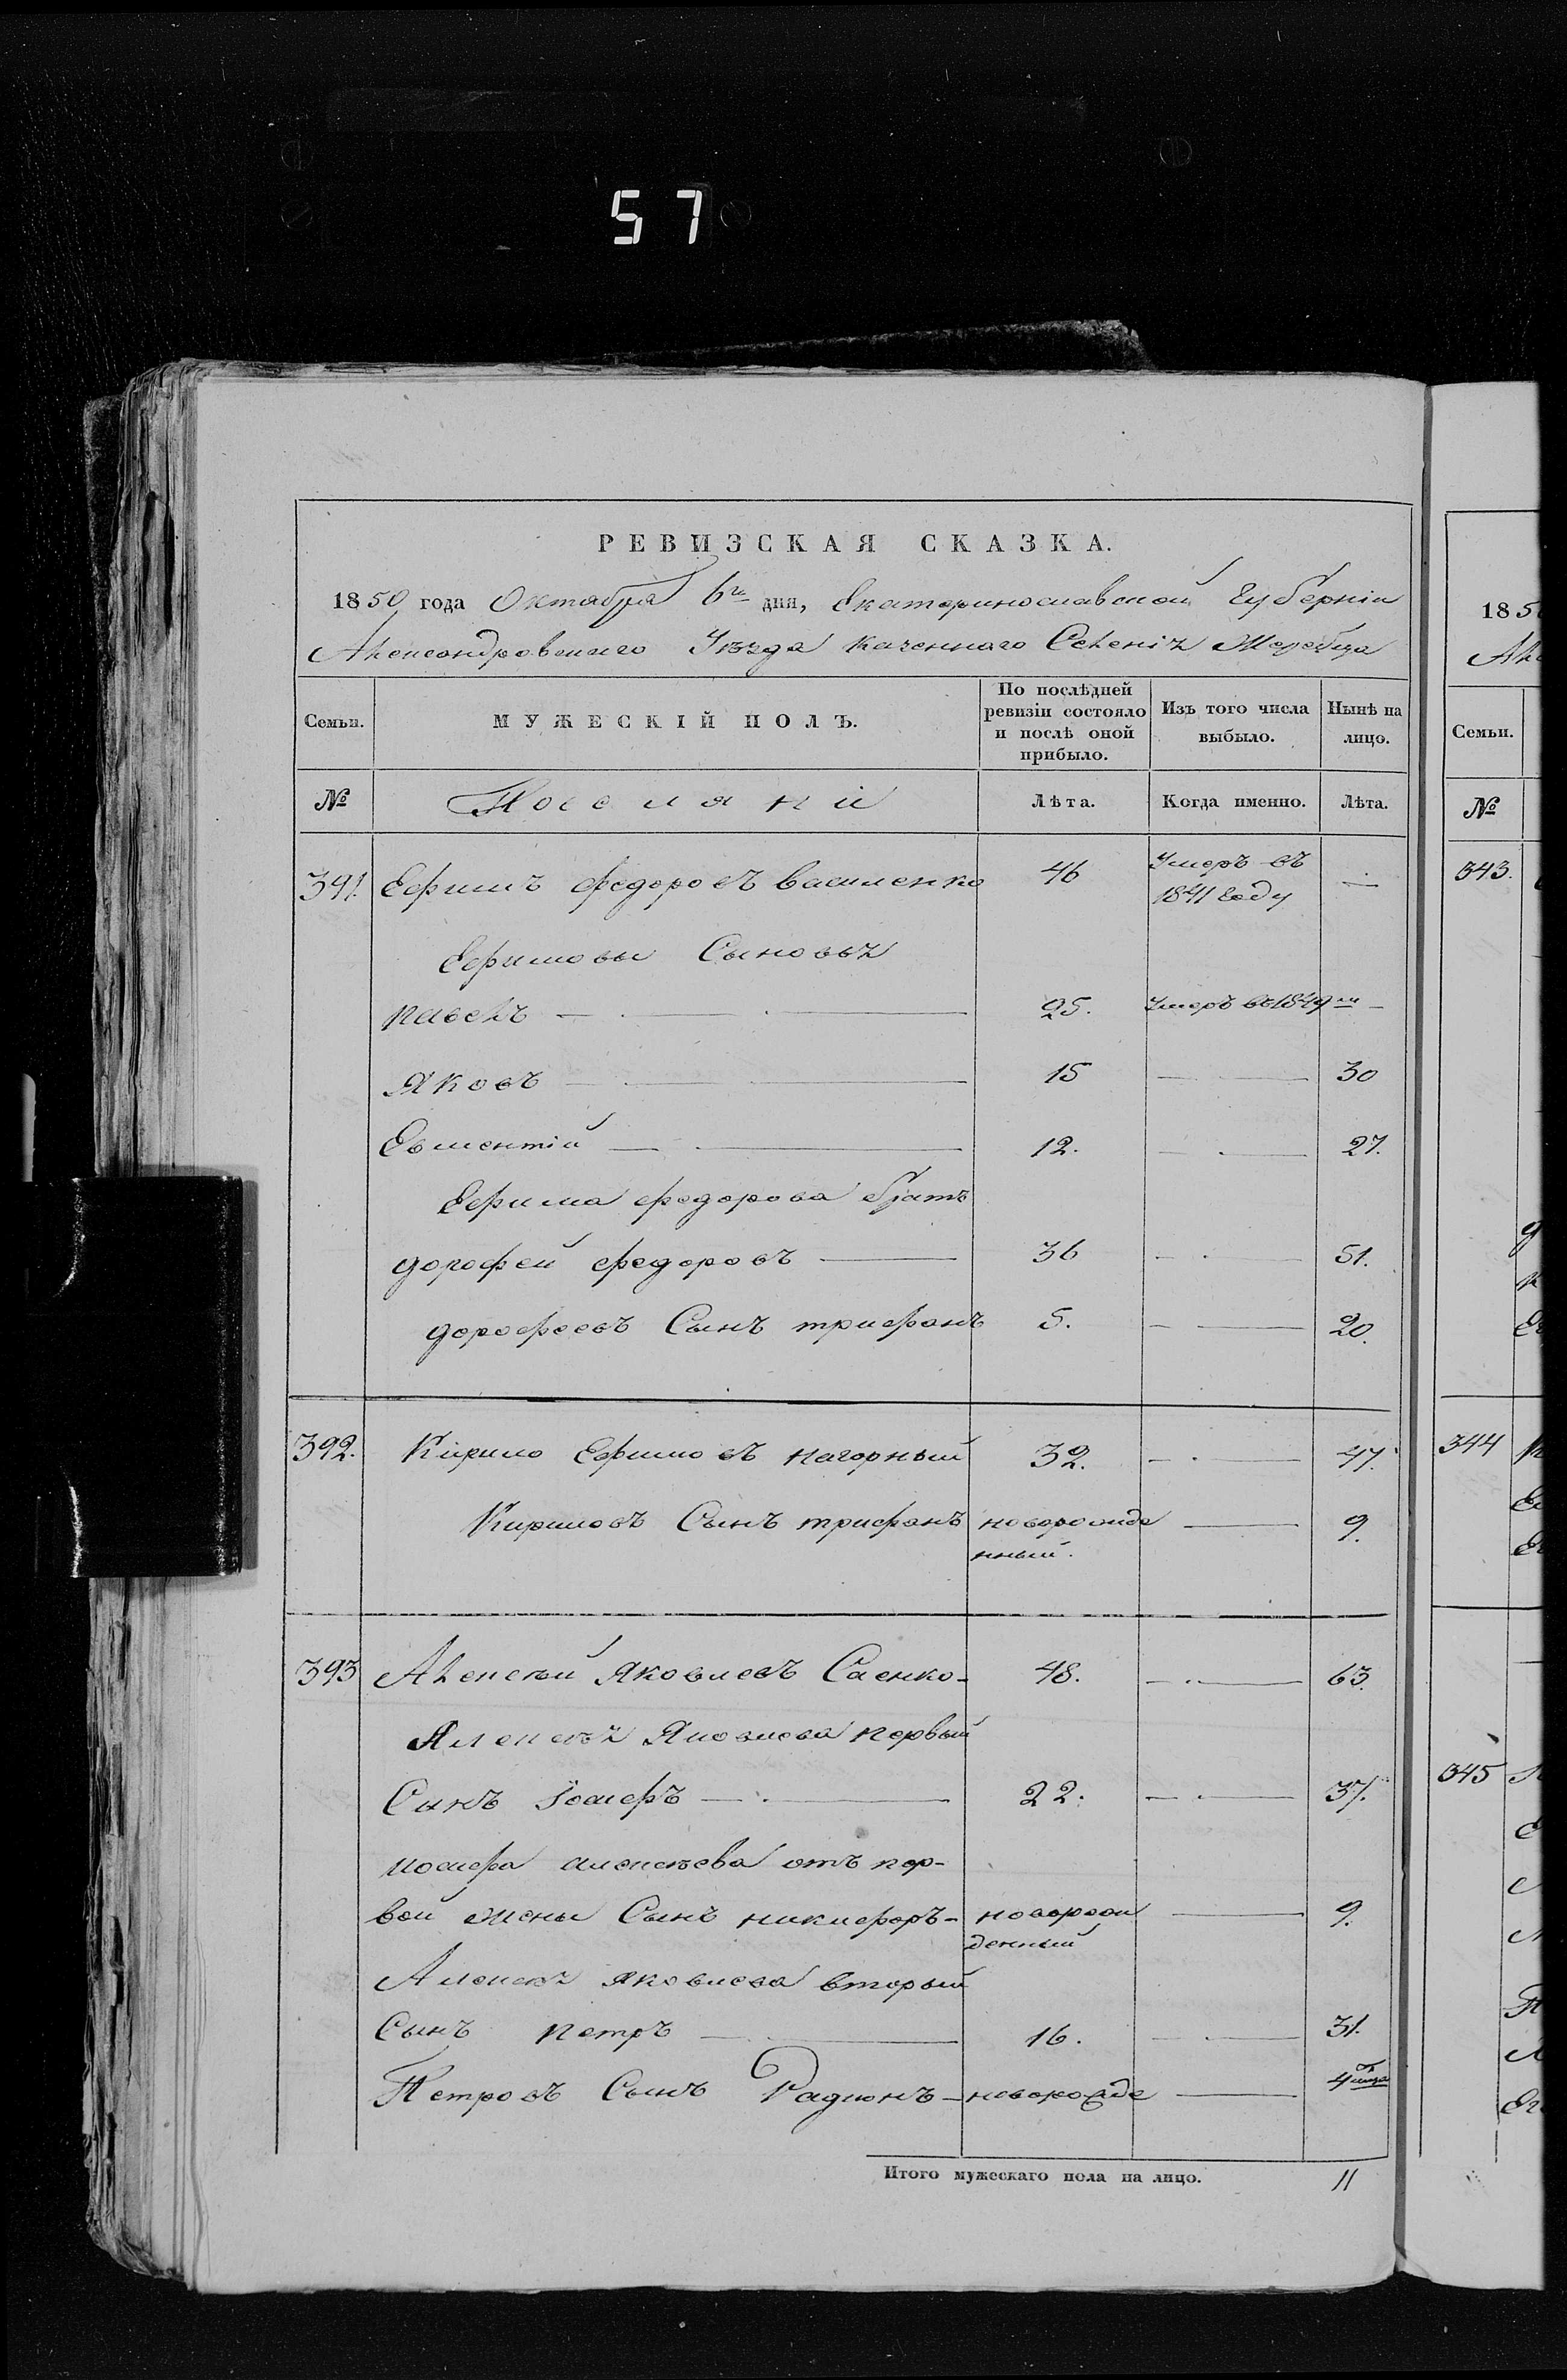 57
РЕВИЗСКАЯ СКАЗКА.
1850 года Октября 6го дня, Екатеринославской Губерніи
Александровскаго Уѣзда Казеннаго Селенія Жеребца
Семьи. МУЖЕСКІЙ ПОЛЪ. По послѣдней ревизіи состояло и послѣ оной прибыло. Изъ того числа выбыло. Нынѣ на лицо.
№ Поселяни Лѣта. Когда именно. Лѣта.
391. Ефимъ федоровъ василенко 46 Умеръ въ 1841 году —
Ефимовы Сыновья
павелъ — 25. Умеръ въ 1849м —
Яковъ — 15 — 30
Евментій — 12. — 27.
Ефима федорова братъ
дорофей федоровъ — 36 — 51.
дорофеевъ Сынъ трифонъ 5. — 20.
392. Кирило Ефимовъ нагорный 32. — 47.
Кириловъ Сынъ трифонъ новорожде — 9.
нный.
393 Алексѣй Яковлевъ Саенко - 48. — 63.
Алексѣя Яковлева первый
Сынъ Іосифъ — 22. — 37.
иосифа алексѣева отъ пер-
вой жены Сынъ никифоръ - новорож — 9.
денный
Алексѣя яковлева вторый
Сынъ петръ — 16. — 31.
Петровъ Сынъ Радионъ - новорожде — 4
Итого мужескаго пола на лицо. 11
1850
Ал
Семьи.
№
343.
344
345